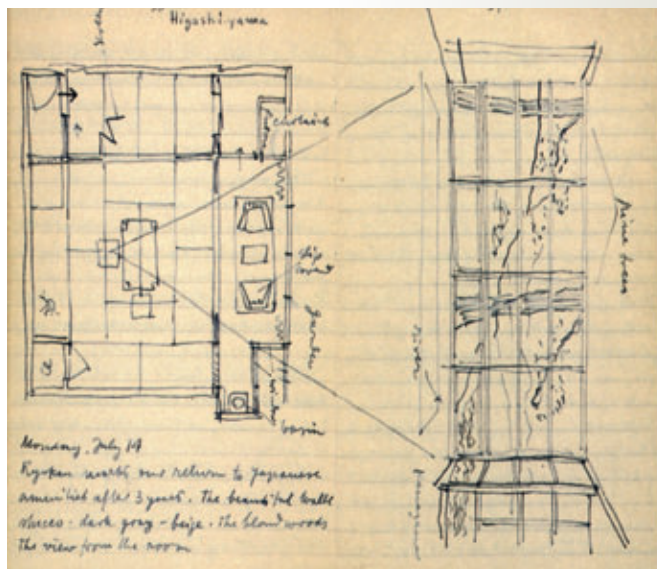 Higashiyama
garden
basin
pine trees
river
Monday, July 14
Ryokan marks our return to Japanese
amenities after 3 years. the beautiful walls
stucco - dark gray - beige. the blond woods
the view from the room